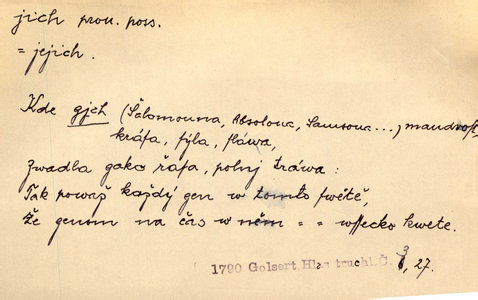 jich pron. poss.
= jejich.
Kde gjch (Šalomouna, Absolona, Samsona...) maudrost,
kráſa, ſýla, ſláwa,
Zwadla gako řáſa, polnj tráwa:
Tak powaž každý gen w tomto ſwětě,
Že genom na čas w něm = = wſſecko kwete.
1790 Golsert, Hlas truchl. Č. 27.